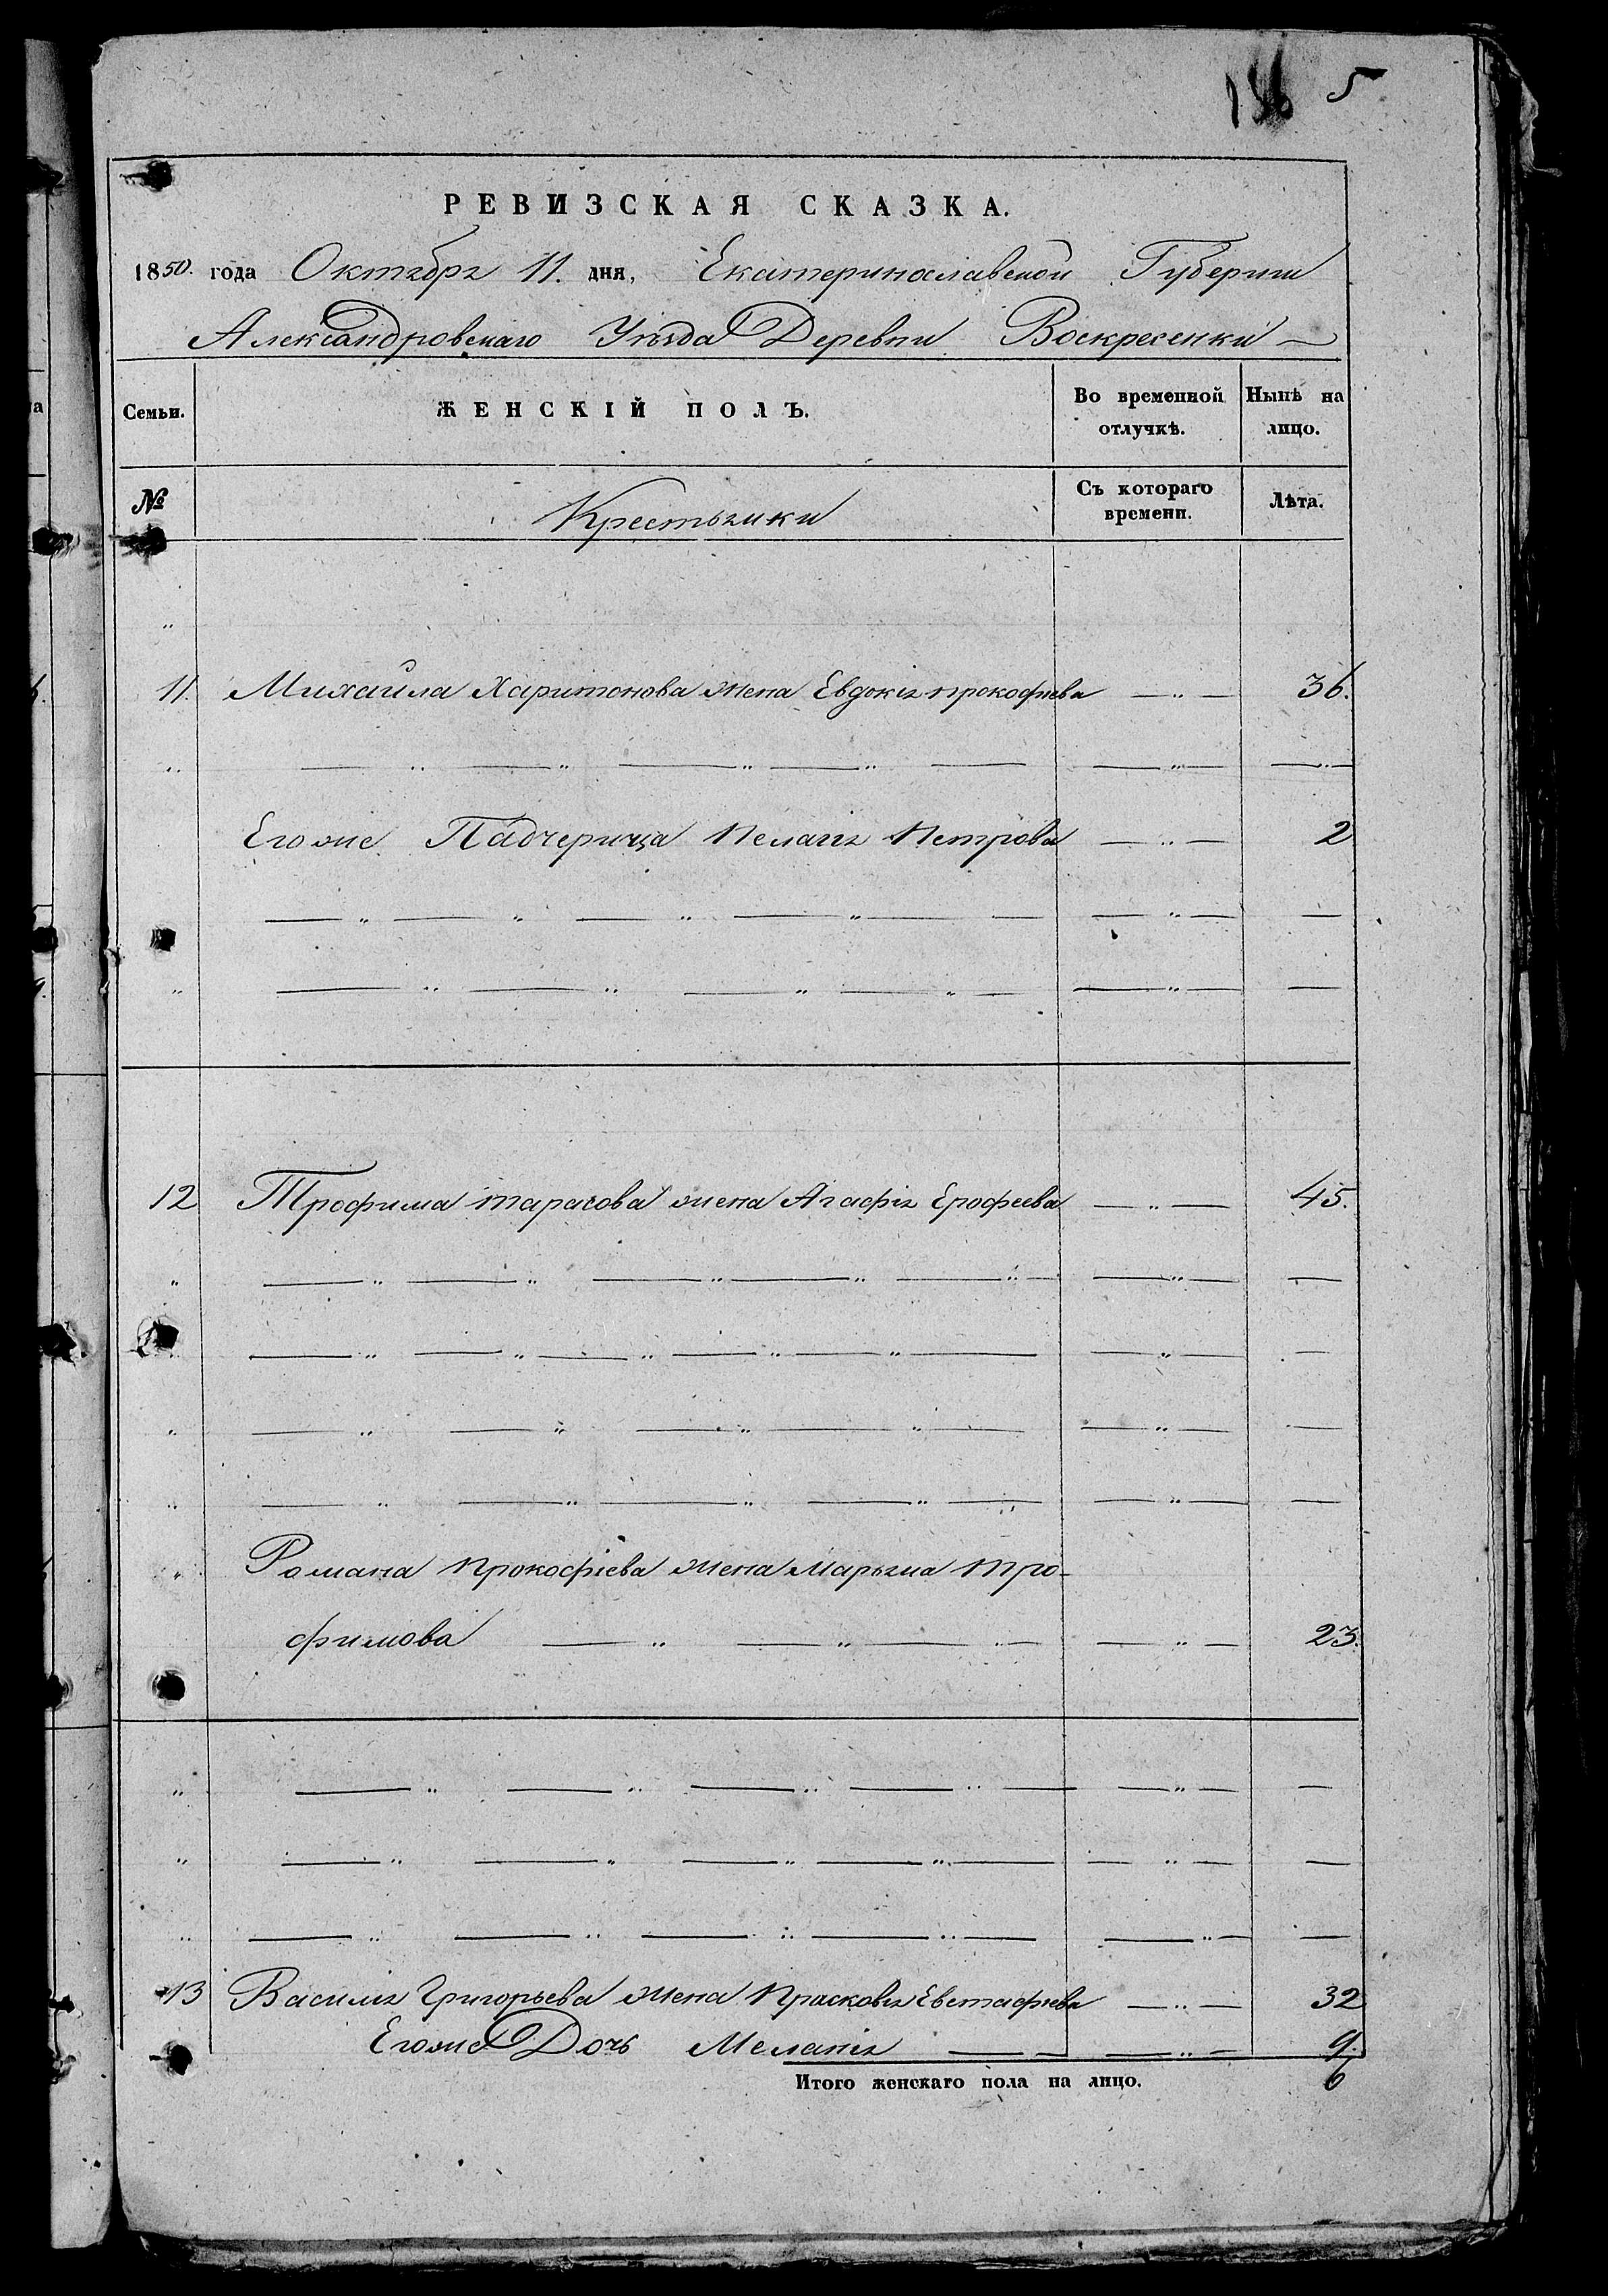 5
РЕВИЗСКАЯ СКАЗКА.
1850. года Октября 11. дня, Екатеринославской Губернии
Александровскаго Уѣзда Деревни Воскресенки —
Семьи. ЖЕНСКІЙ ПОЛЪ. Во временной отлучкѣ. Нынѣ на лицо.
№ Крестьянки Съ котораго времени. Лѣта.
11. Михайла Харитонова жена Евдокія прокофьева — „ — 36.
Его же Падчерица Пелагія Петрова — „ — 2
12 Трофима тарасова жена Агафія Ерофеева — „ — 45.
Романа Прокофіева жена Марьяна Тро-
фимова — „ — 23.
13 Василія Григорьева жена Прасковія Евстафіева — „ — 32
Его же Дочь Меланія — „ — 9.
Итого женскаго пола на лицо. 6